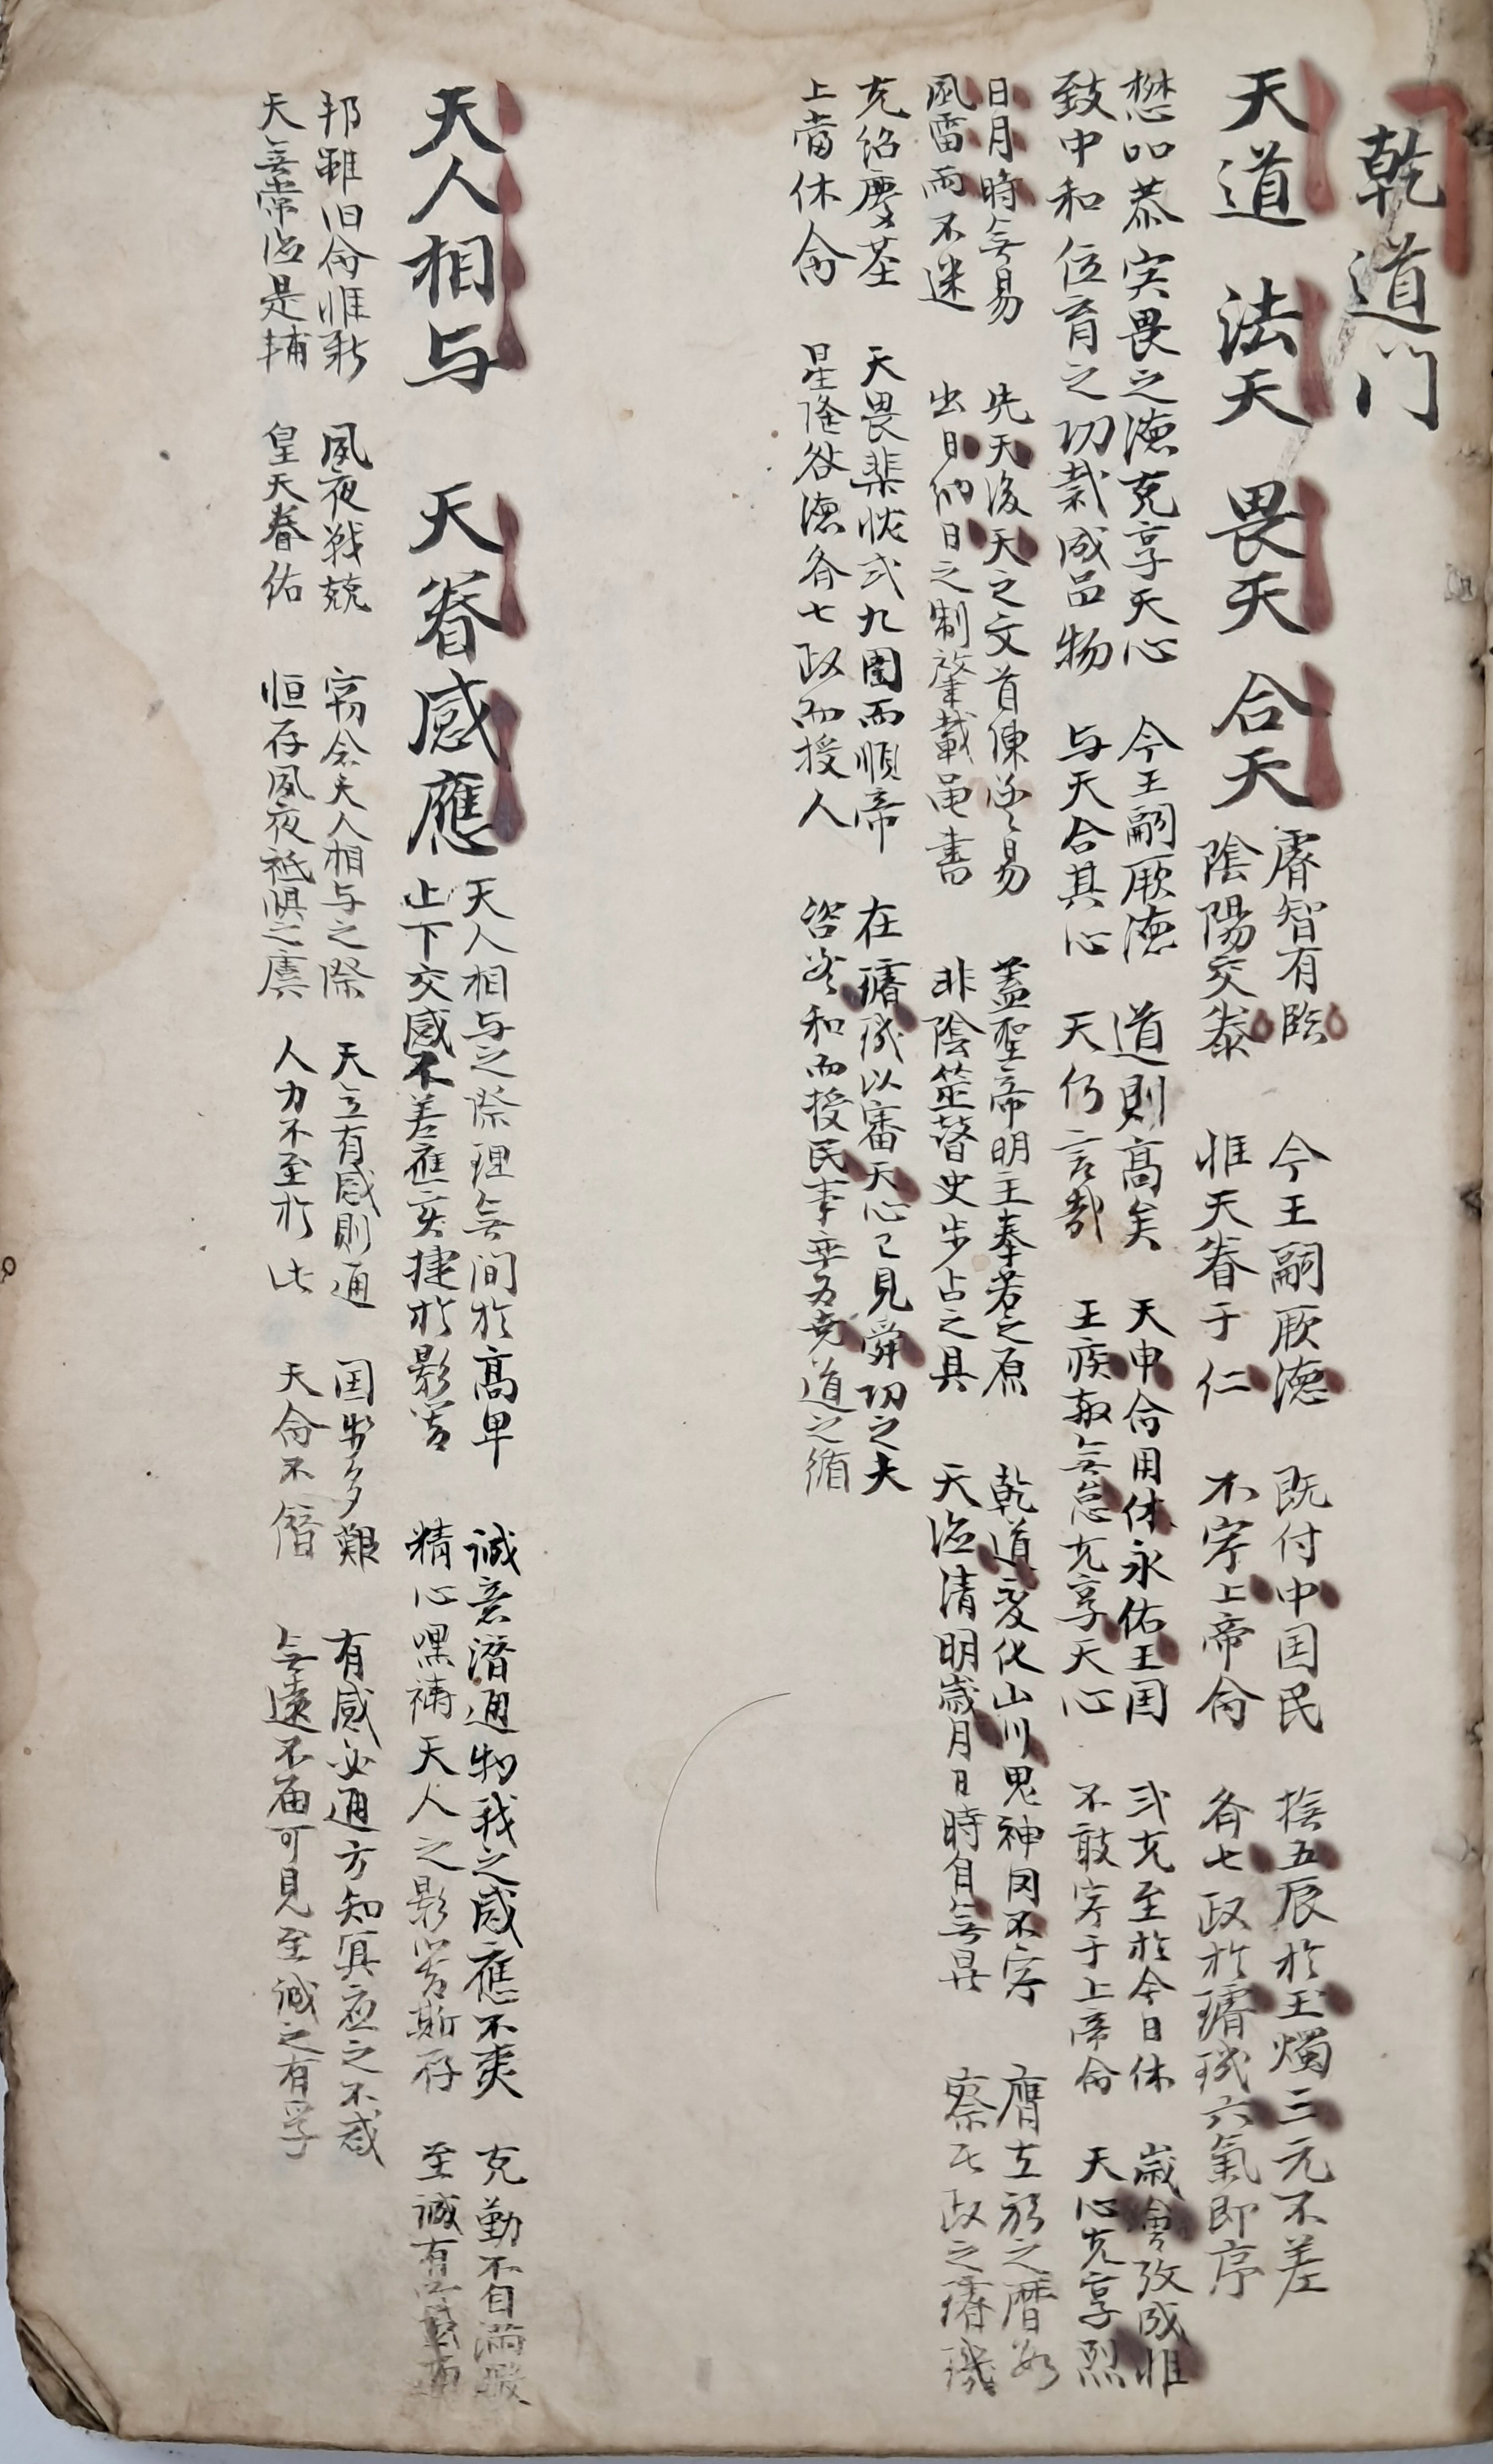 乾道门
天道 法天 畏天 合天
睿智有臨 今王嗣厥德 既付中囯民 撫五辰於玉燭三元不差
陰陽交泰 惟天眷于仁 不字上帝命 齐七政於璿璣六氣即序
懋昭恭寅畏之德克享天心 今王嗣厥德 道則高矣 天申命用休永佑王囯 式克至於今日休 歳會攷成惟
致中和位育之功裁成品物 与天合其心 天何言哉 王疾敬無怠克享天心 不敢字于上帝命 天心克享烈
日月時無易 先天後天之文首陳 易 蓋聖帝明王奉若之原 乾道变化山川鬼神罔不寧 膺立 之暦数
風雷雨不迷 出日納日之制肇載 書 非陰筮瞽史步占之具 天道清明歳月日時自無易 察民政之璿璣
克紹慶基 天畏棐忱式九囲而順帝 在璿璣以審天心已見舜功之大
上當休命 星隆谷德齐七政而授人 咨羲和而授民事率为尭道之循
天人相与 天眷感應
天人相与之際理無间於高卑 诚意潛通物我之感應不爽 克勤不自满假
上下交感不差應实捷於影芗 精心嘿禱天人之影芗斯存 至诚有
邦雖旧命惟新 夙夜戦兢 窃念天人相与之際 天立有感則通 囯步多艱 有感必通方知冥应之不忒
天無常德是輔 皇天眷佑 恒存夙夜祗惧之虞 人力不至於此 天命不僭 無遠不届可見至诚之有孚